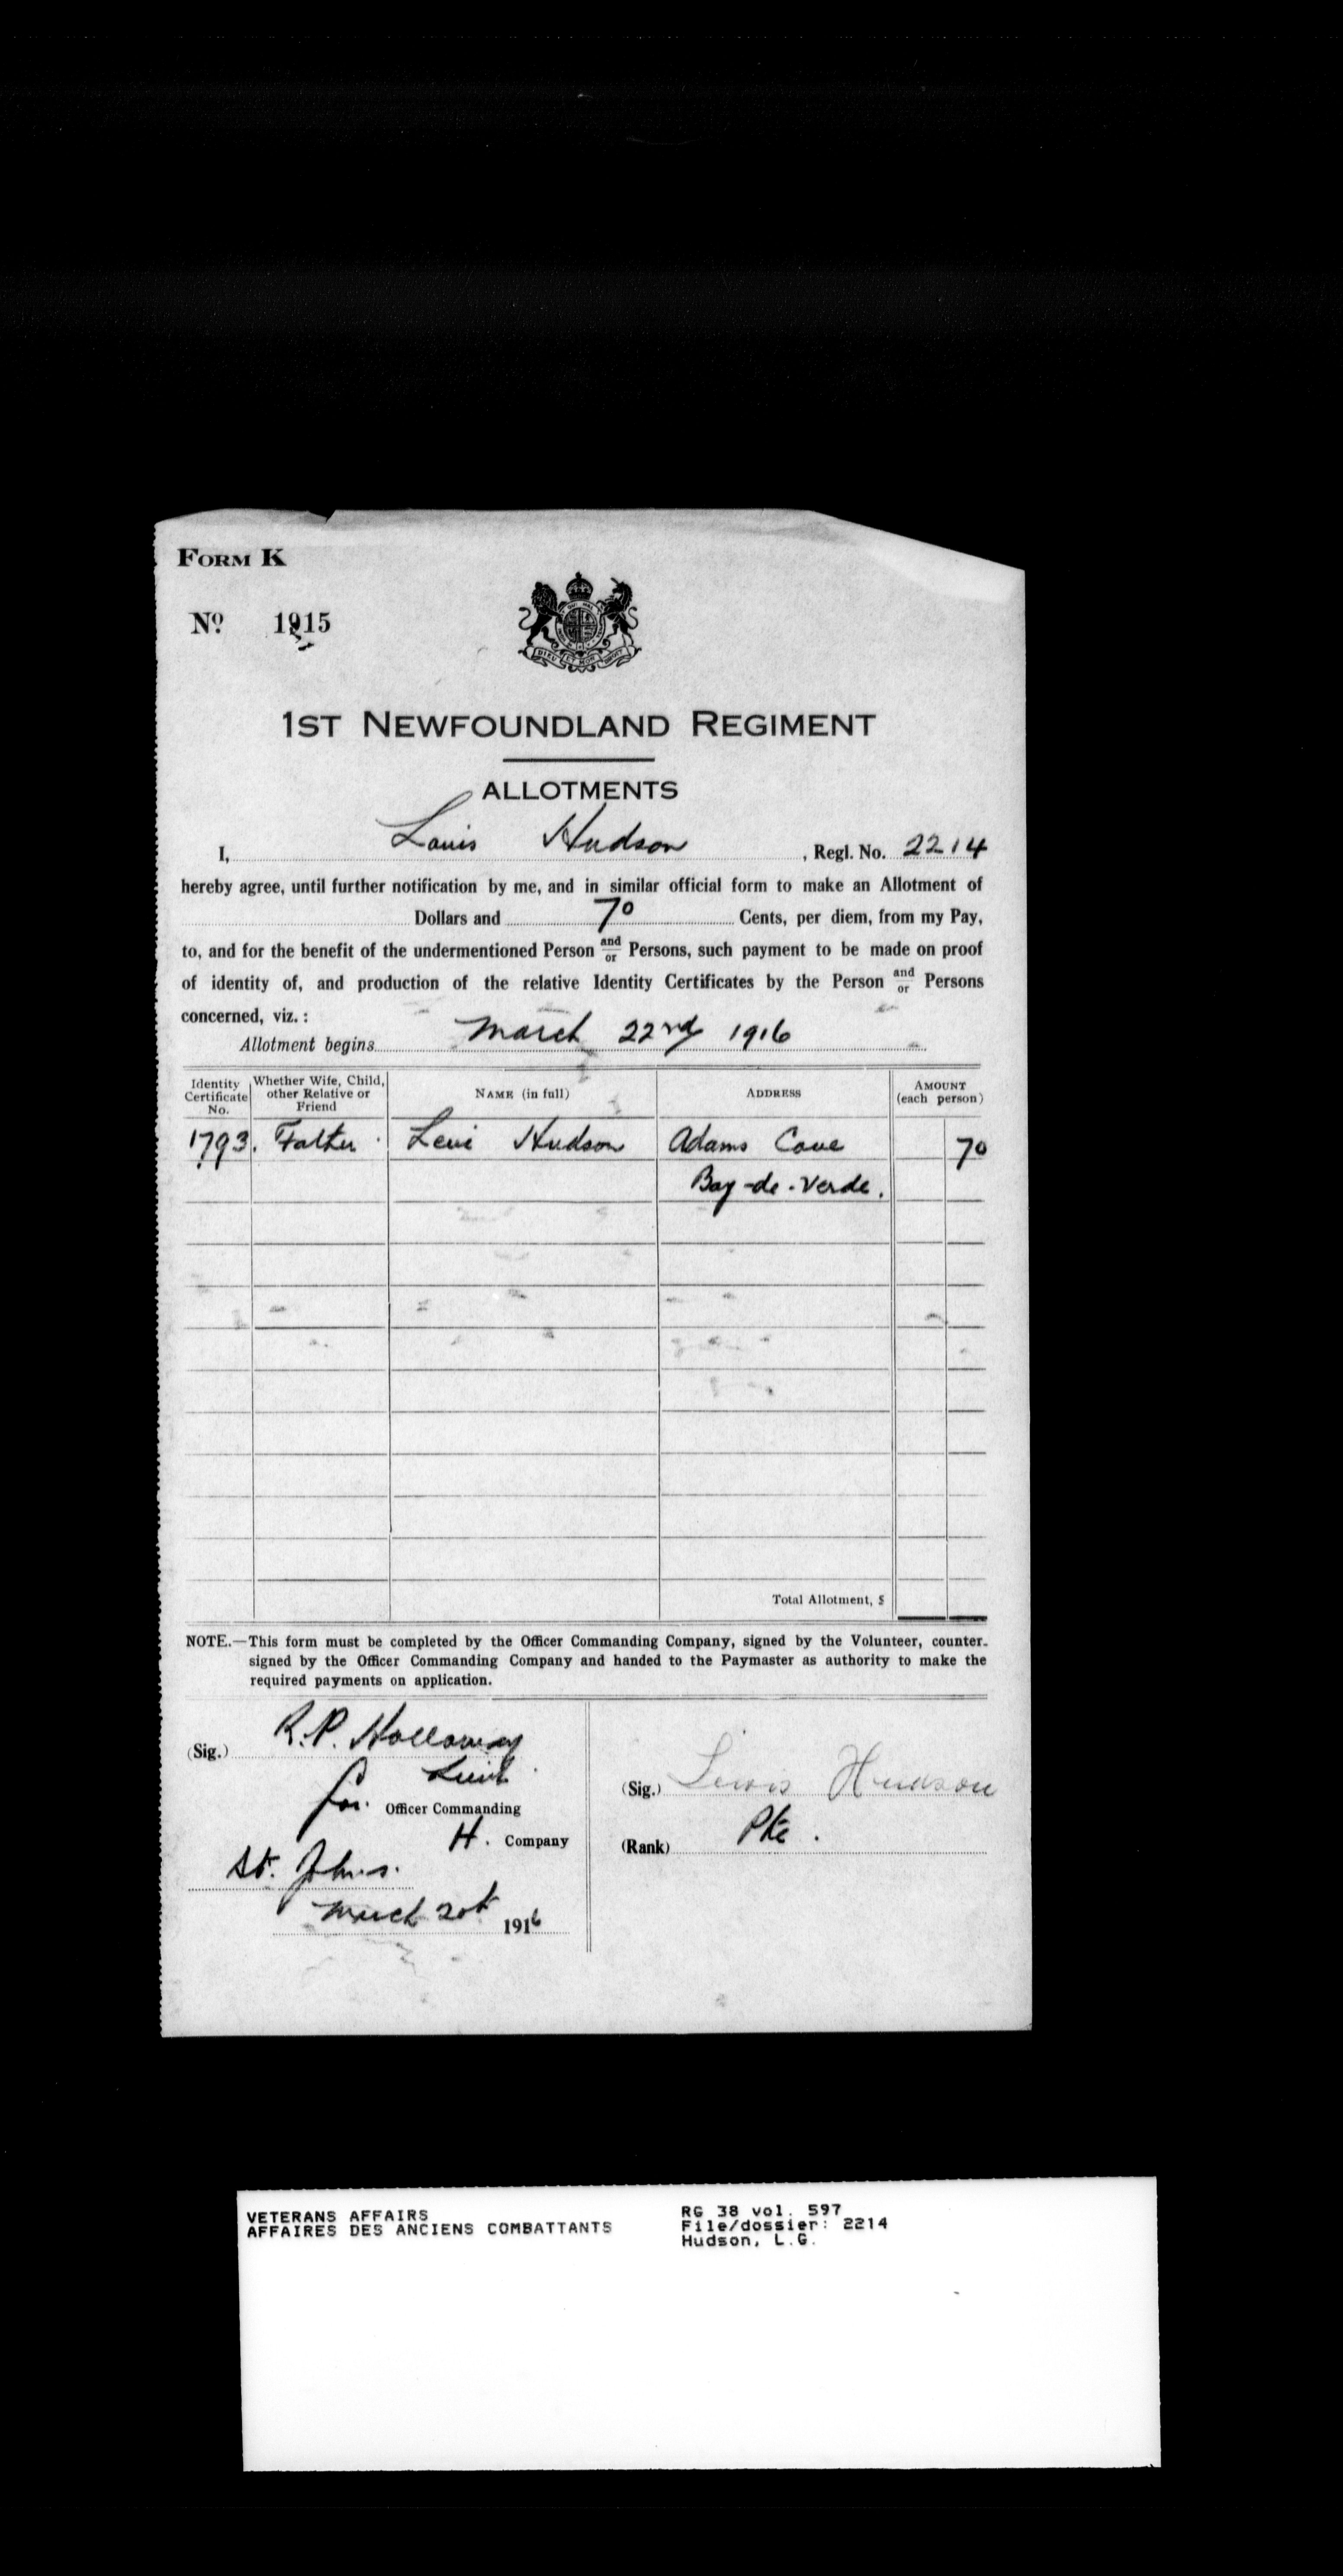 FORM K
No. 1915
1ST NEWFOUNDLAND REGIMENT
ALLOTMENTS
I, Louis Hudson, Regl. No. 2214
hereby agree, until further notification by me, and in similar official form to make an Allotment of
Dollars and 70 Cents, per diem, from my Pay,
to, and for the benefit of the undermentioned Person and/or Persons, such payment to be made on proof
of identity of, and production of the relative Identity Certificates by the Person and/or Persons
concerned, viz.:
Allotment begins March 22nd 1916
Identity Certificate No. Whether Wife, Child, other Relative or Friend NAME (in full) ADDRESS AMOUNT (each person)
1793. Father Levi Hudson Adams Cove 70
Bay-de-Verde.
Total Allotment, $
NOTE.—This form must be completed by the Officer Commanding Company, signed by the Volunteer, counter-
signed by the Officer Commanding Company and handed to the Paymaster as authority to make the
required payments on application.
(Sig.) R.P. Holloway
Lieut
for Officer Commanding
H. Company
St. Johns.
March 20th 1916
(Sig.) Lewis Hudson
(Rank) Pte.
VETERANS AFFAIRS
AFFAIRES DES ANCIENS COMBATTANTS
RG 38 vol. 597
File/dossier: 2214
Hudson, L.G.